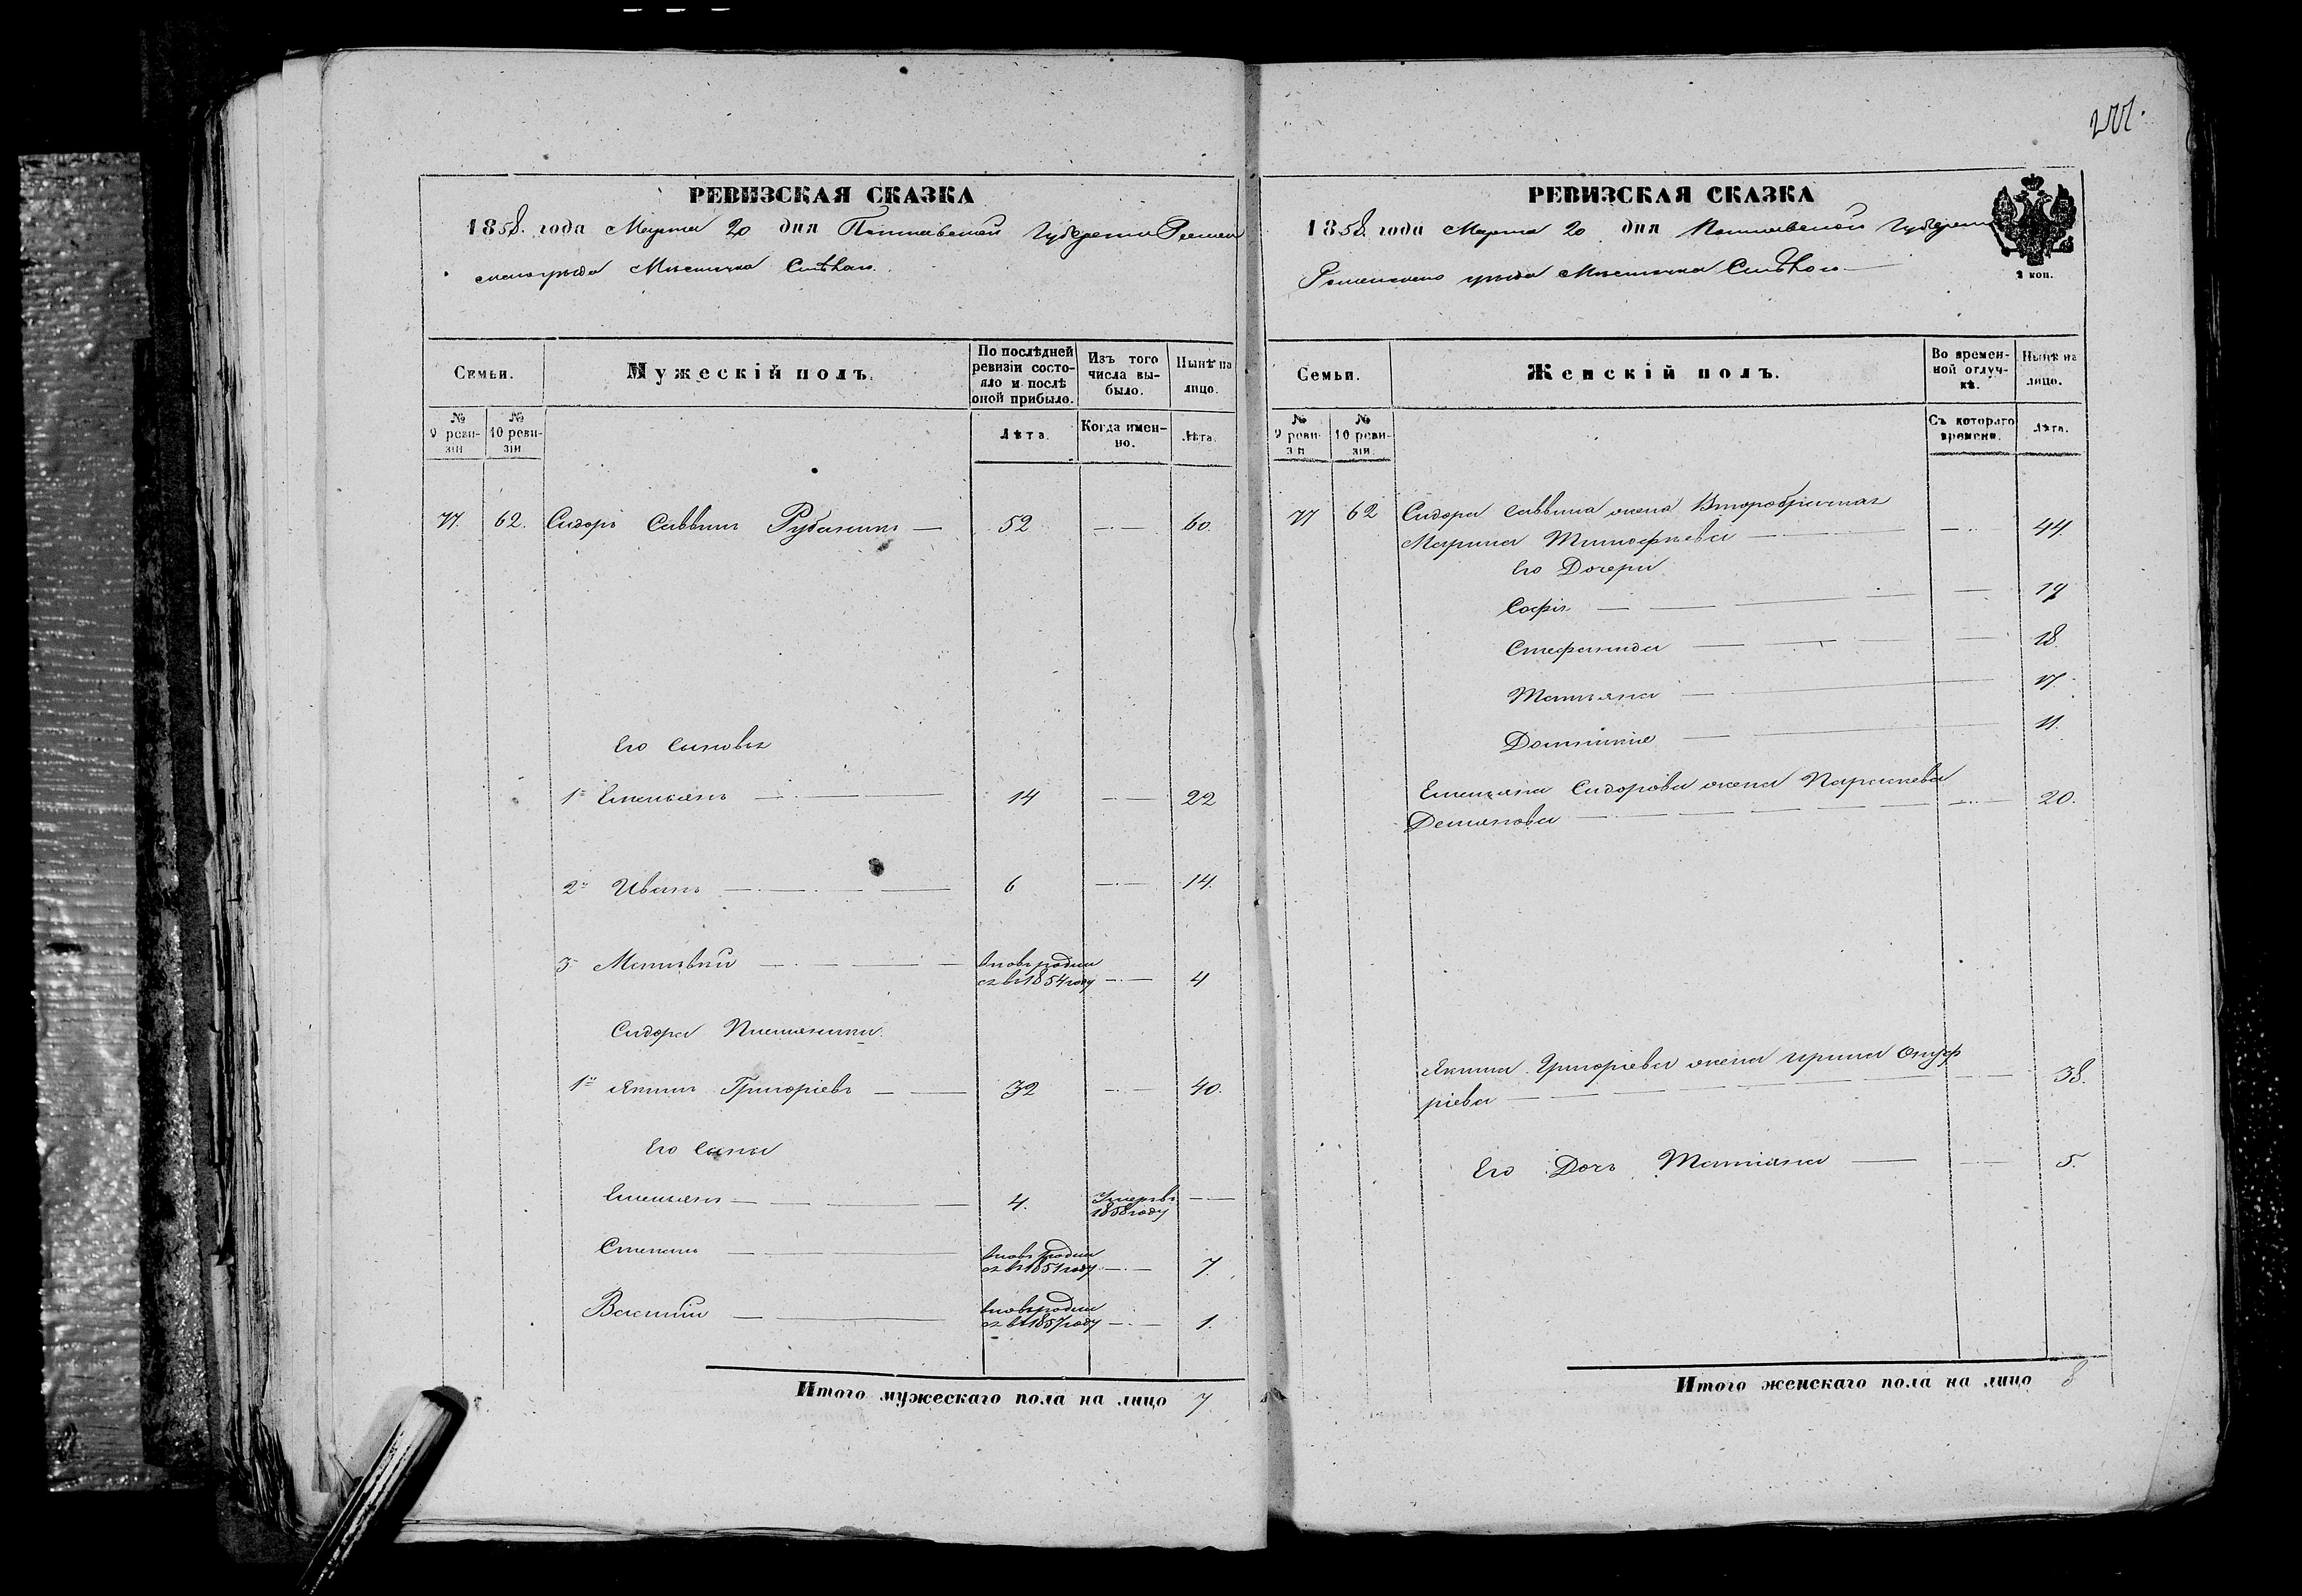 РЕВИЗСКАЯ СКАЗКА
1858. года Марта 20 дня Полтавской Губерніи Ромен
скаго уѣзда Мѣстечка Смѣлого.
Семьи.
Мужескій полъ.
По послѣдней ревизіи состояло и послѣ оной прибыло.
Изъ того числа выбыло.
Нынѣ на лицо.
№ 9 ревизіи
№ 10 ревизіи
Лѣта.
Когда именно.
Лѣта.
77. 62. Сидоръ Саввинъ Рубанъ — 52 — 60.
Его сыновья
1й Емельянъ — 14 — 22
2й Иванъ — 6 — 14.
3й Матвѣй — вновь родил
ся въ 1854 году — 4
Сидора Племянники.
1й Якимъ Григоріевъ — 32 — 40.
Его сыны
Емельянъ — 4. Умеръ въ
1858 году —
Степанъ — вновь родил
ся въ 1851 году — 7.
Василій — вновь родил
ся въ 1857 году — 1.
Итого мужескаго пола на лицо 7
РЕВИЗСКАЯ СКАЗКА
1858. года Марта 20 дня Полтавской Губерніи
Роменскаго уѣзда Мѣстечка Смѣлого —
2 коп.
Семьи.
Женскій полъ.
Во временной отлучкѣ.
Нынѣ на лицо.
№ 9 ревизіи
№ 10 ревизіи.
Съ котораго времени.
Лѣта.
77 62 Сидора Саввина жена Второбрачная
Марина Тимофѣева — 44.
Его Дочери
Софія — 19
Стефанида — 18.
Татьяна — 17.
Домникія — 11.
Емельяна Сидорова жена Параскева
Демянова — 20.
Якима Григоріева жена Ирина Онуф
ріева — 38.
Его Дочь Татіяна — 5.
Итого женскаго пола на лицо 8